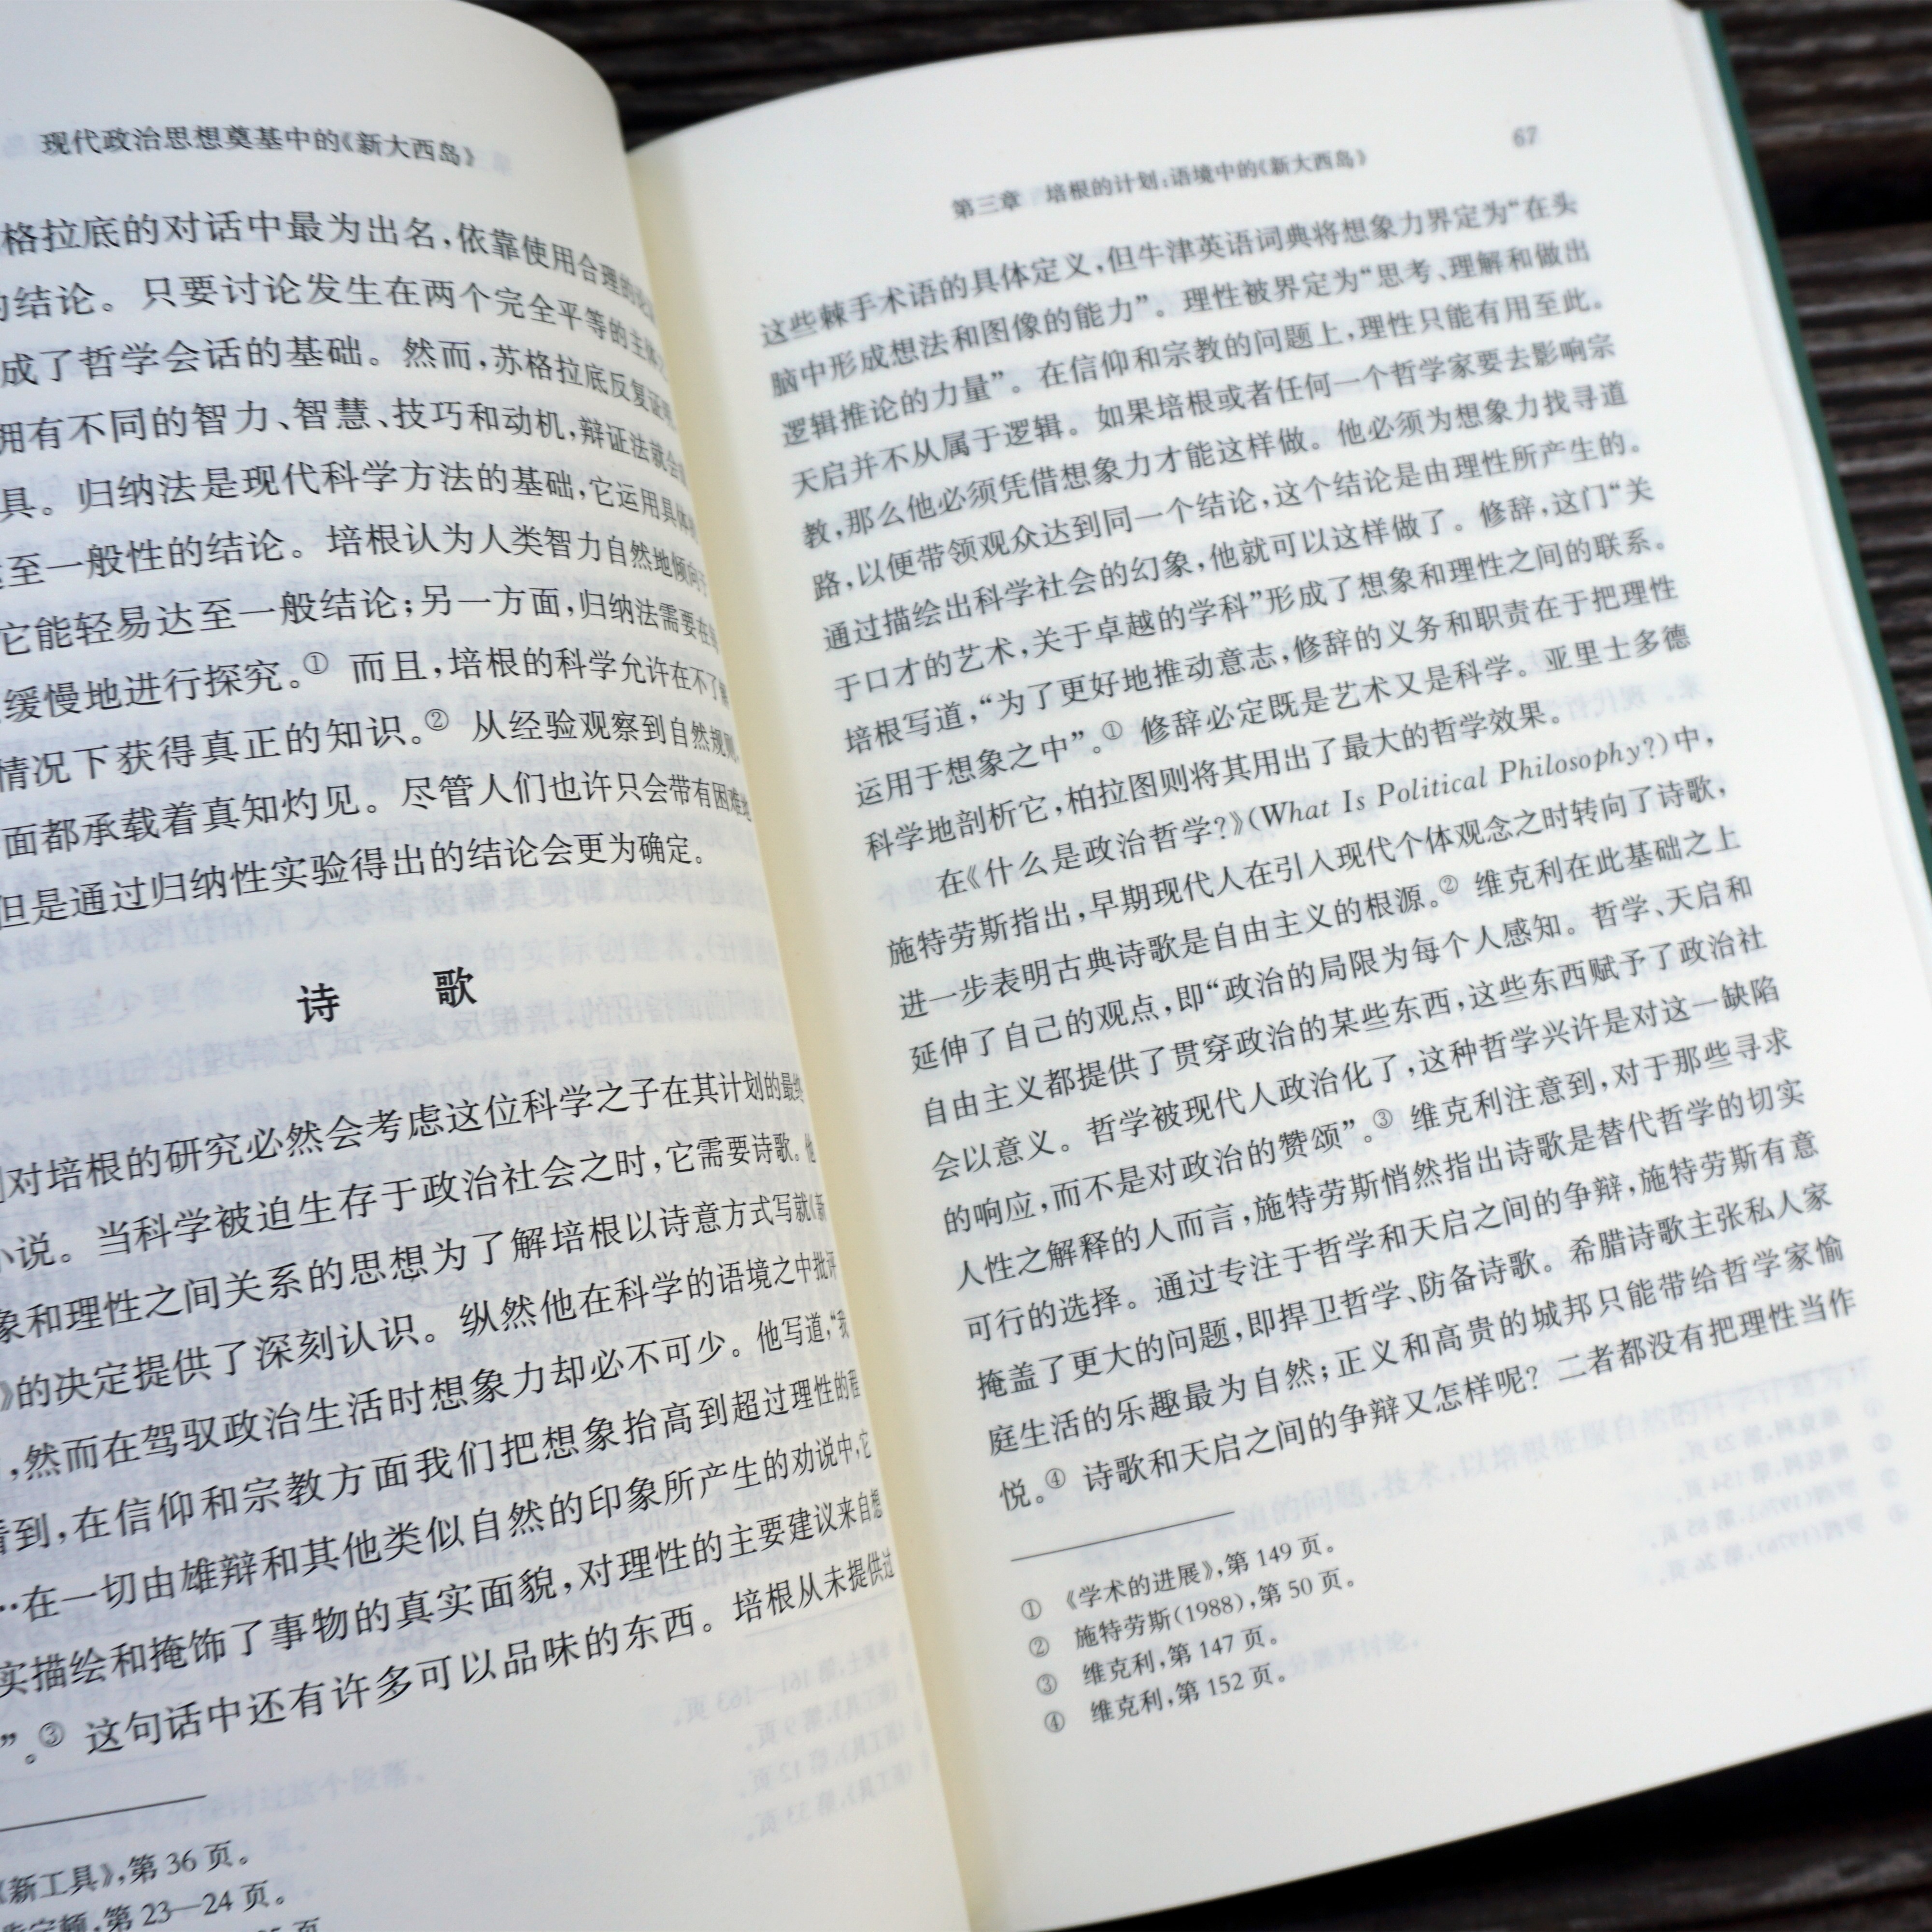 现代政治思想奠基中的《新大西岛》
格拉底的对话中最为出名,依靠使用合理的
的结论。只要讨论发生在两个完全平等的主体
成了哲学会话的基础。然而,苏格拉底反复证
拥有不同的智力、智慧、技巧和动机,辩证法就会
具。归纳法是现代科学方法的基础,它运用具体
至一般性的结论。培根认为人类智力自然地倾向于
它能轻易达至一般结论;另一方面,归纳法需要在
缓慢地进行探究。① 而且,培根的科学允许在不了
情况下获得真正的知识。② 从经验观察到自然规
面都承载着真知灼见。尽管人们也许只会带有困难地
但是通过归纳性实验得出的结论会更为确定。
诗 歌
对培根的研究必然会考虑这位科学之子在其计划的最终
小说。当科学被迫生存于政治社会之时,它需要诗歌。他
象和理性之间关系的思想为了解培根以诗意方式写就《新
》的决定提供了深刻认识。纵然他在科学的语境之中批评
,然而在驾驭政治生活时想象力却必不可少。他写道,“我
看到,在信仰和宗教方面我们把想象抬高到超过理性的程
…在一切由雄辩和其他类似自然的印象所产生的劝说中,它
实描绘和掩饰了事物的真实面貌,对理性的主要建议来自想
”。③ 这句话中还有许多可以品味的东西。培根从未提供过
《新工具》,第 36 页。
第 23—24 页。
页
第三章 培根的计划:语境中的《新大西岛》 67
这些棘手术语的具体定义,但牛津英语词典将想象力界定为“在头
脑中形成想法和图像的能力”。理性被界定为“思考、理解和做出
逻辑推论的力量”。在信仰和宗教的问题上,理性只能有用至此。
天启并不从属于逻辑。如果培根或者任何一个哲学家要去影响宗
教,那么他必须凭借想象力才能这样做。他必须为想象力找寻道
路,以便带领观众达到同一个结论,这个结论是由理性所产生的。
通过描绘出科学社会的幻象,他就可以这样做了。修辞,这门“关
于口才的艺术,关于卓越的学科”形成了想象和理性之间的联系。
培根写道,“为了更好地推动意志,修辞的义务和职责在于把理性
运用于想象之中”。① 修辞必定既是艺术又是科学。亚里士多德
科学地剖析它,柏拉图则将其用出了最大的哲学效果。
在《什么是政治哲学?》(What Is Political Philosophy?)中,
施特劳斯指出,早期现代人在引入现代个体观念之时转向了诗歌,
进一步表明古典诗歌是自由主义的根源。② 维克利在此基础之上
延伸了自己的观点,即“政治的局限为每个人感知。哲学、天启和
自由主义都提供了贯穿政治的某些东西,这些东西赋予了政治社
会以意义。哲学被现代人政治化了,这种哲学兴许是对这一缺陷
的响应,而不是对政治的赞颂”。③ 维克利注意到,对于那些寻求
人性之解释的人而言,施特劳斯悄然指出诗歌是替代哲学的切实
可行的选择。通过专注于哲学和天启之间的争辩,施特劳斯有意
掩盖了更大的问题,即捍卫哲学、防备诗歌。希腊诗歌主张私人家
庭生活的乐趣最为自然;正义和高贵的城邦只能带给哲学家愉
悦。④ 诗歌和天启之间的争辩又怎样呢?二者都没有把理性当作
① 《学术的进展》,第 149 页。
② 施特劳斯(1988),第 50 页。
③ 维克利,第 147 页。
④ 维克利,第 152 页。